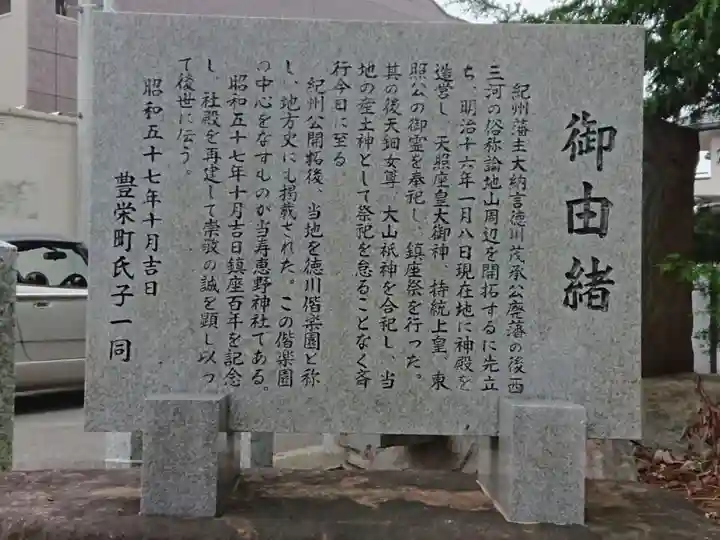 御由緒
紀州藩主大納言徳川茂承公廃藩の後西
三河の俗称論地山周辺を開拓するに先立
ち、明治十六年一月八日現在地に神殿を
造営し、天照座皇大御神、持統上皇、東
照公の御霊を奉祀し、鎮座祭を行った。
其の後天鈿女尊、大山祇神を合祀し、当
地の産土神として祭祀を怠ることなく斉
行今日に至る。
紀州公開拓後、当地を徳川偕楽園と称
し、地方史にも掲載された。この偕楽園
の中心をなすものが当寿恵野神社である。
昭和五十七年十月吉日鎮座百年を記念
し、社殿を再建して崇敬の誠を顕し以っ
て後世に伝う。
昭和五十七年十月吉日
豊栄町氏子一同